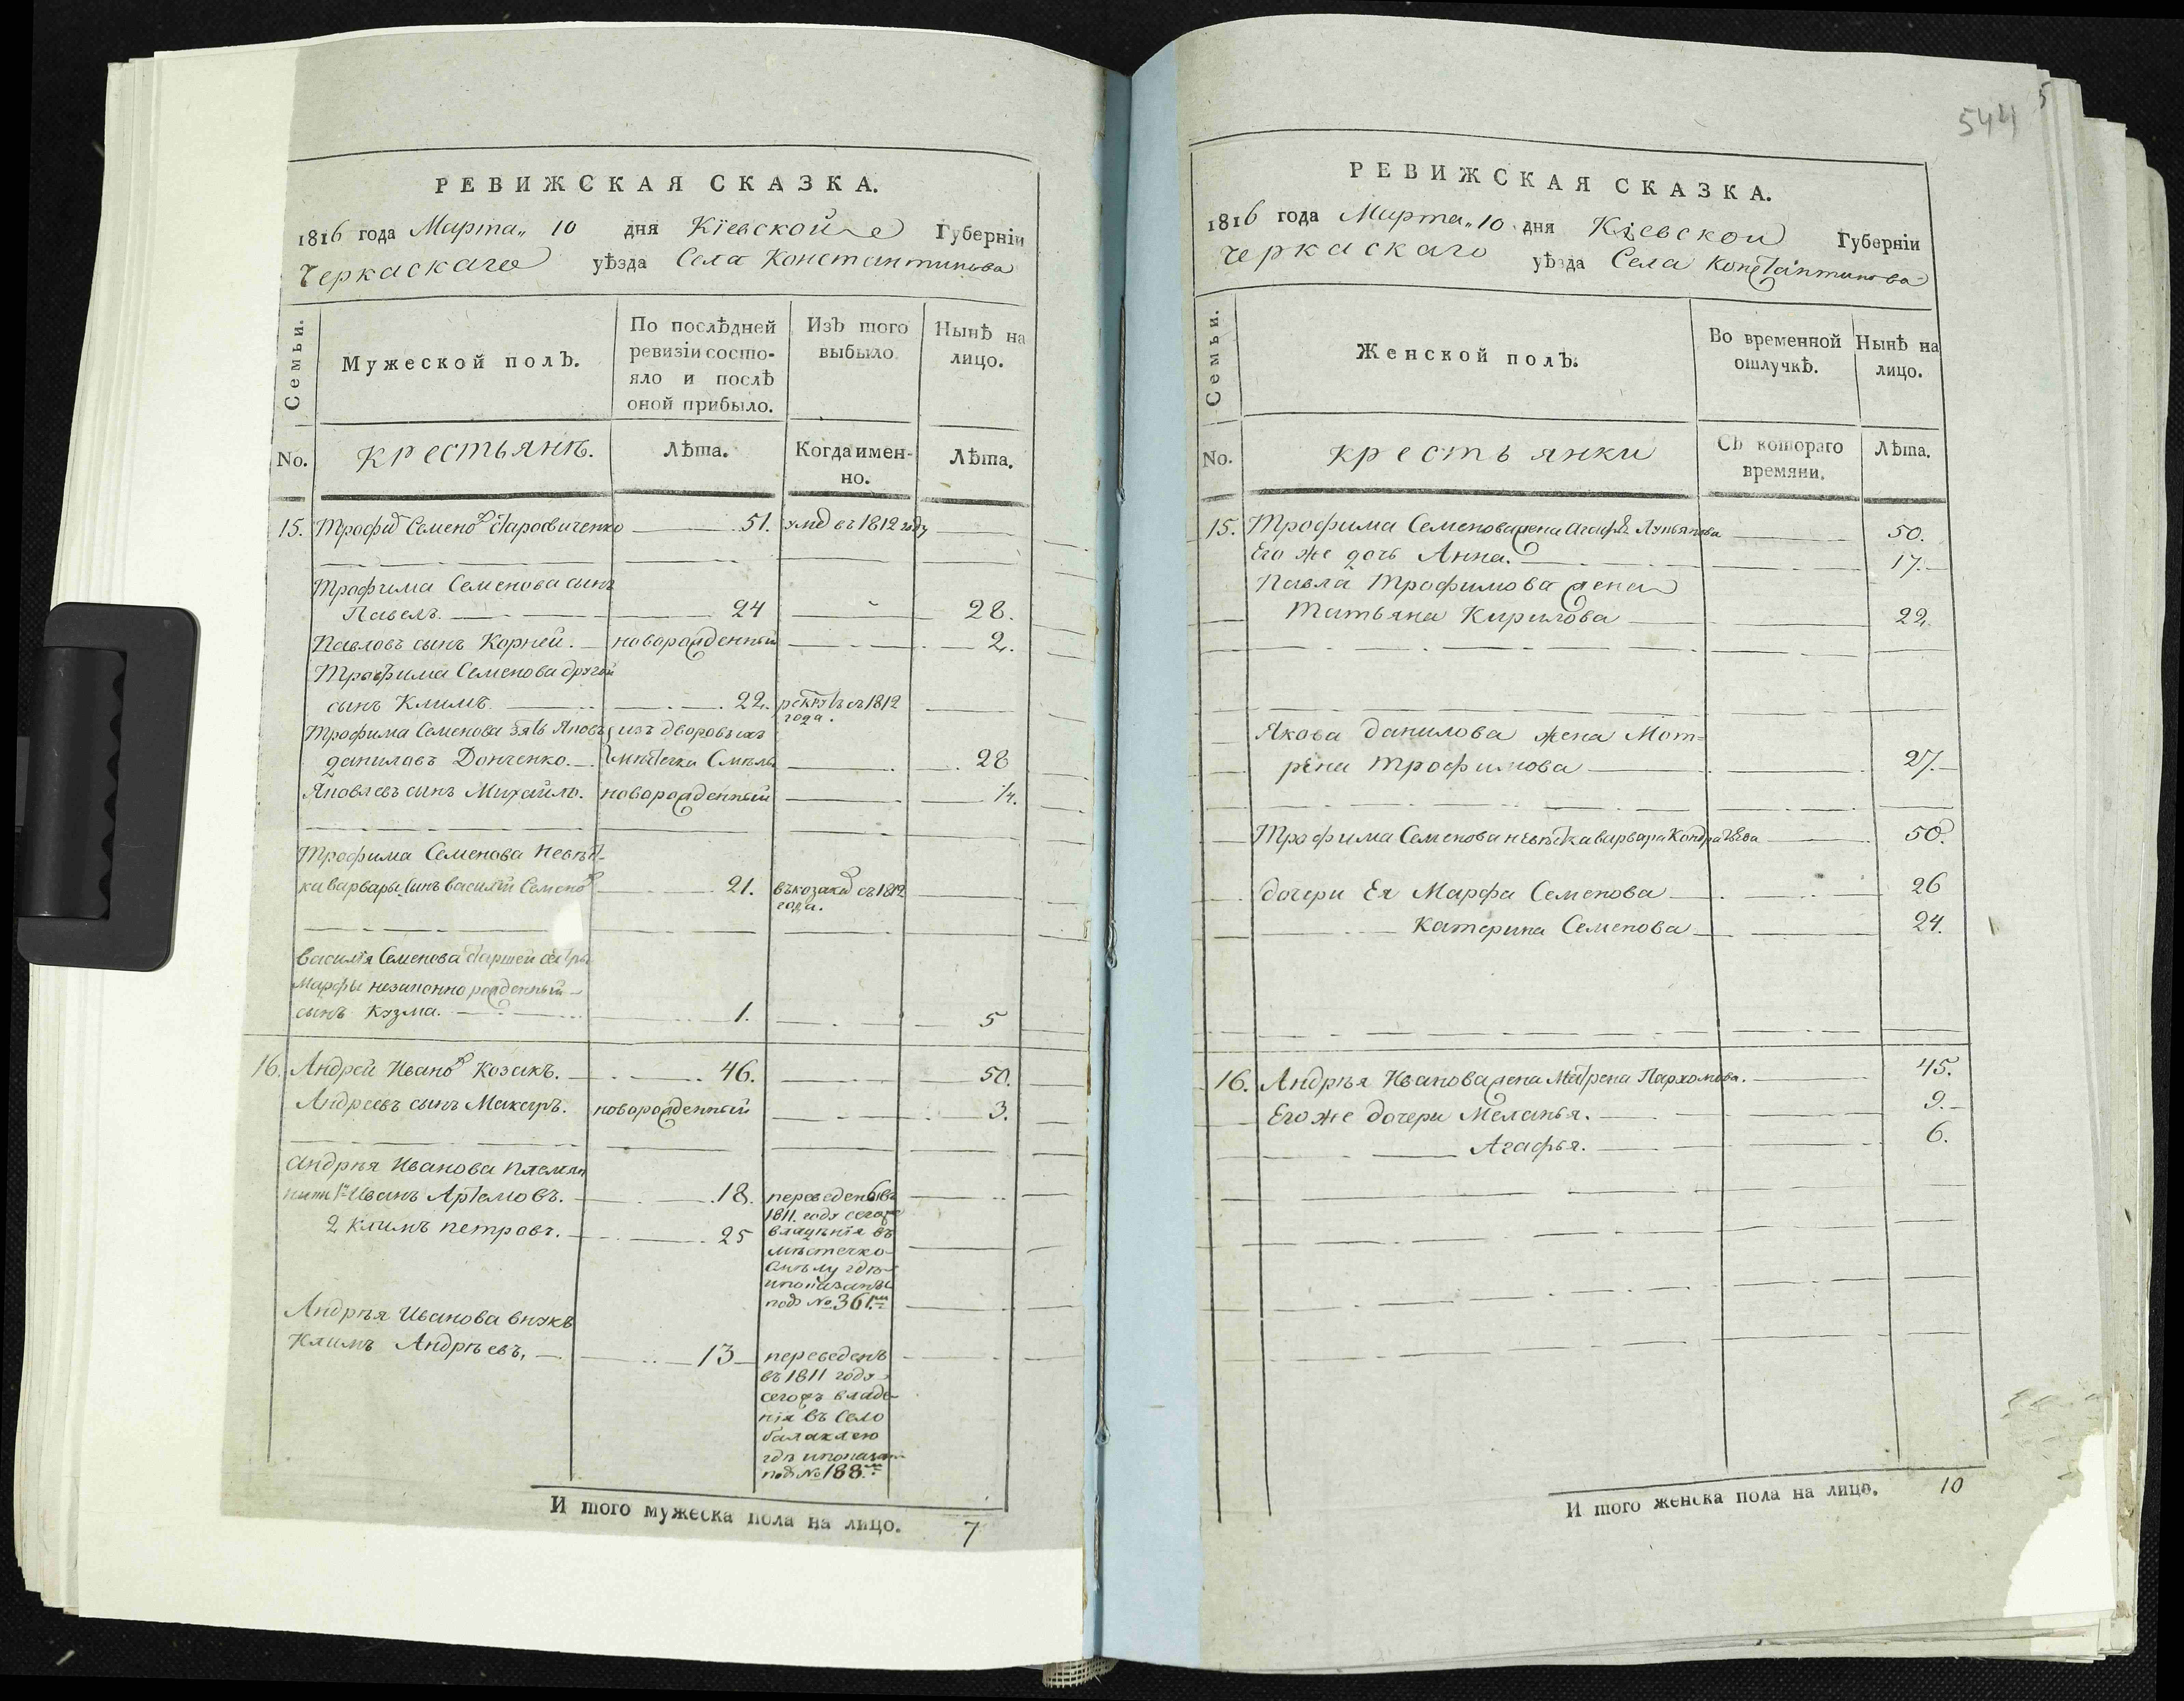 544
5
РЕВИЖСКАЯ СКАЗКА.
1816 года Марта „ 10 дня Кіевской Губерніи
Черкаскаго уѣзда Села Константинова
Семьи.
Мужеской полъ.
По послѣдней
ревизіи состо-
яло и послѣ
оной прибыло.
Изъ того
выбыло.
Нынѣ на
лицо.
No.
крестьянѣ.
Лѣта.
Когда имен-
но.
Лѣта.
15. Трофим Семенов Старовиченко 51. умер съ 1812 году
Трофима Семенова сынъ
Павелъ. 24 28.
Павловъ сынъ Корней. новорожденный 2.
Трофима Семенова другой
сынъ Климъ 22. рекрутъ съ 1812
года.
Трофима Семенова зять Яковъ из дворовыхъ
даниловъ Донченко. местечка Смелы 28
Яковлевъ сынъ Михайло. новорожденный 1/4.
Трофима Семенова невѣст-
ки варвары сынъ василій Семенов 21. въ козаки съ 1812
года.
василія Семенова старшей сестры
Марфы незаконно рожденный
сынъ Кузма. 1. 5
16. Андрей Иванов Козакъ. 46. 50.
Андреевъ сынъ Макаръ. новорожденный 3.
Андрѣя Иванова племян
ники 1й Иванъ Артемовъ. 18. переведены въ
1811. году сегож
2 климъ петровъ. 25 владѣнія въ
мѣстечко
Смѣлу гдѣ
и показаны
под № 361.мъ
Андрѣя Иванова внукъ
Климъ Андрѣевъ, 13 переведенъ
въ 1811 году
сегожъ владе-
нія въ Село
балаклею
гдѣ и показан
под № 188.мъ
И того мужеска пола на лицо. 7
РЕВИЖСКАЯ СКАЗКА.
1816 года Марта „ 10 дня Кіевской Губерніи
Черкаскаго уѣзда Села Константинова
Семьи.
Женской полъ.
Во временной
отлучкѣ.
Нынѣ на
лицо.
No.
крестьянки
Съ котораго
времяни.
Лѣта.
15. Трофима Семенова жена Агафія Лукьянова 50.
Его же дочь Анна. 17.
Павла Трофимова жена
Татьяна Кирилова 22.
Якова данилова жена Мот-
рена трофимова 27.
Трофима Семенова невѣстка варвара Кондратьева 50
дочери Ея Марфа Семенова 26
Катерина Семенова 24.
16. Андрѣя Иванова жена Матрена Пархомова. 45.
Его же дочери Меланья. 9.
Агафья. 6.
И того женска пола на лицо. 10